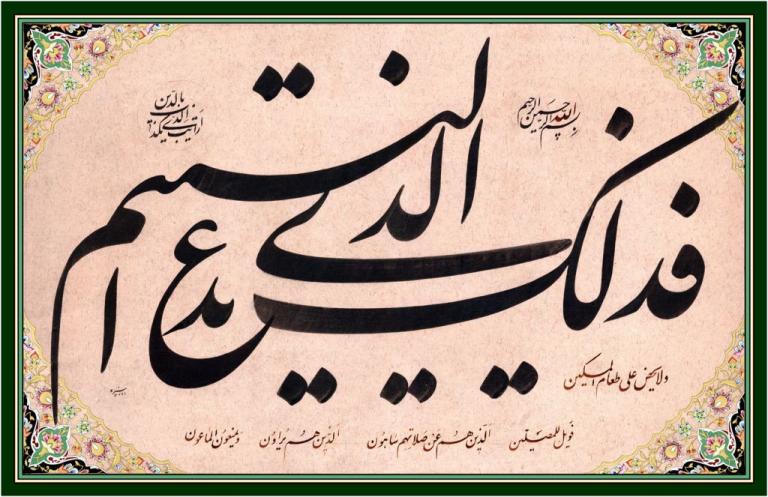 بسم الله الرحمن الرحیم
ارایت الذی یکذب
بالدین
فذلک الذی یدع الیتیم
ولا یحض علی طعام المسکین
فویل للمصلین الذین هم عن صلاتهم ساهون الذین هم یراؤن ویمنعون الماعون